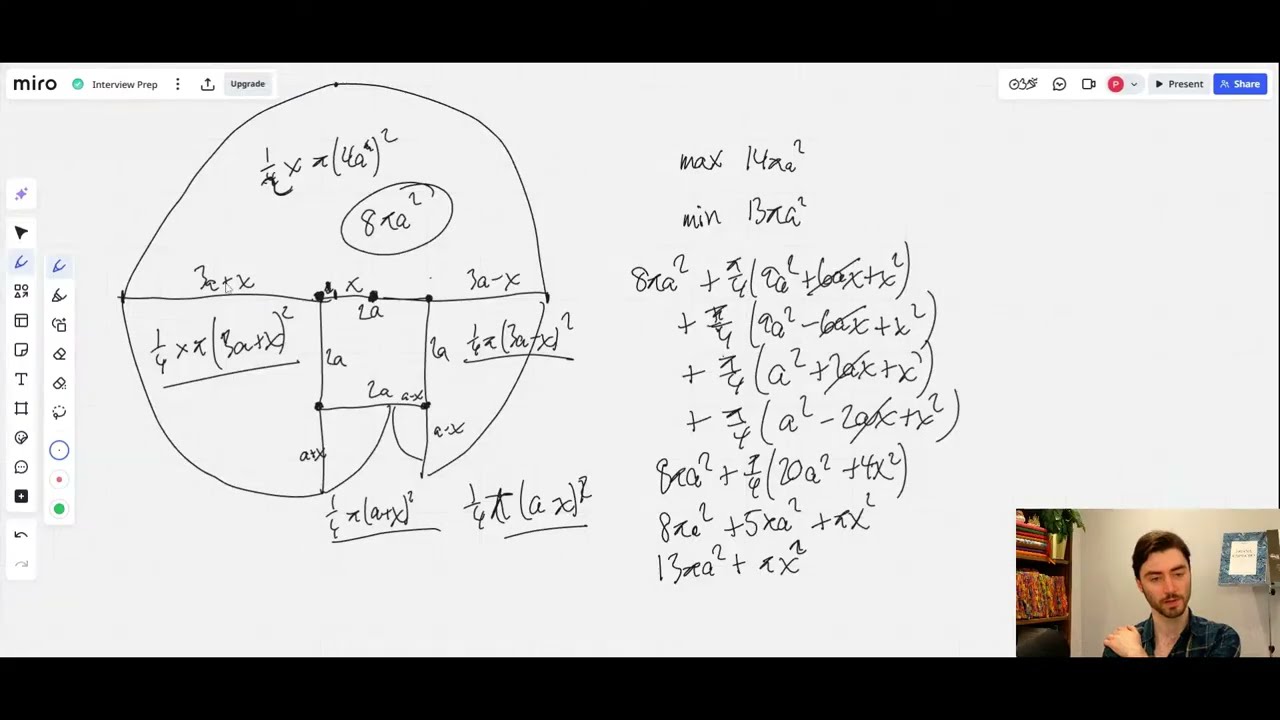 miro
Interview Prep
Upgrade
Present
Share
P
T
½ × π(4a)²
8πa²
3a+x
x
3a-x
2a
¼ × π(3a+x)²
2a
2a
¼π(3a-x)²
2a
a-x
a+x
a-x
¼π(a+x)²
¼π(a x)²
max 14πa²
min 13πa²
8πa² + π/4(9a²+6ax+x²)
+ π/4(9a²-6ax+x²)
+ π/4(a²+2ax+x²)
+ π/4(a²-2ax+x²)
8πa² + π/4(20a²+4x²)
8πa² + 5πa² + πx²
13πa² + πx²